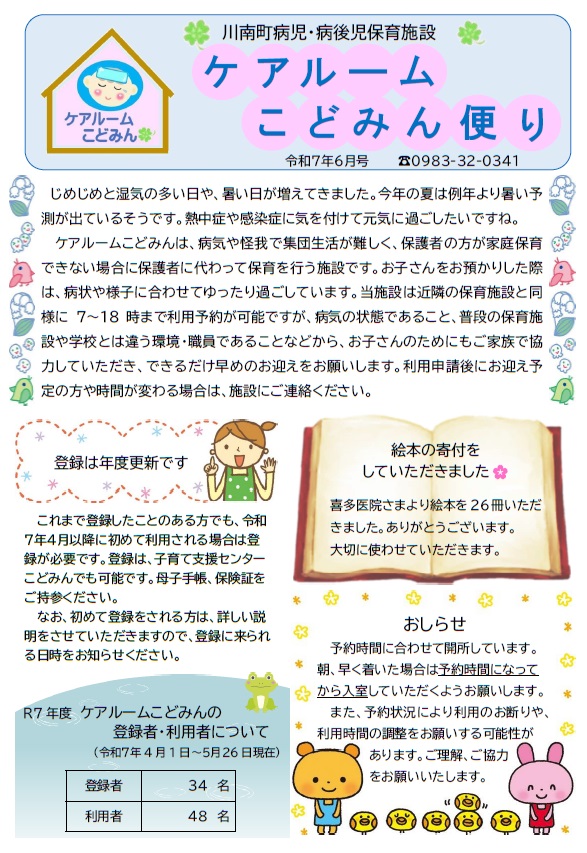 川南町病児・病後児保育施設
ケアルーム
こどみん
ケアルーム
こどみん便り
令和7年6月号 ☎0983-32-0341
じめじめと湿気の多い日や、暑い日が増えてきました。今年の夏は例年より暑い予
測が出ているそうです。熱中症や感染症に気を付けて元気に過ごしたいですね。
ケアルームこどみんは、病気や怪我で集団生活が難しく、保護者の方が家庭保育
できない場合に保護者に代わって保育を行う施設です。お子さんをお預かりした際
は、病状や様子に合わせてゆったり過ごしています。当施設は近隣の保育施設と同
様に 7～18 時まで利用予約が可能ですが、病気の状態であること、普段の保育施
設や学校とは違う環境・職員であることなどから、お子さんのためにもご家族で協
力していただき、できるだけ早めのお迎えをお願いします。利用申請後にお迎え予
定の方や時間が変わる場合は、施設にご連絡ください。
登録は年度更新です
これまで登録したことのある方でも、令和
7年4月以降に初めて利用される場合は登
録が必要です。登録は、子育て支援センター
こどみんでも可能です。母子手帳、保険証を
ご持参ください。
なお、初めて登録をされる方は、詳しい説
明をさせていただきますので、登録に来られ
る日時をお知らせください。
R7年度 ケアルームこどみんの
登録者・利用者について
（令和7年4月1日～5月26日現在）
登録者 34 名
利用者 48 名
絵本の寄付を
していただきました
喜多医院さまより絵本を26冊いただ
きました。ありがとうございます。
大切に使わせていただきます。
おしらせ
予約時間に合わせて開所しています。
朝、早く着いた場合は予約時間になって
から入室していただくようお願いします。
また、予約状況により利用のお断りや、
利用時間の調整をお願いする可能性が
あります。ご理解、ご協力
をお願いいたします。